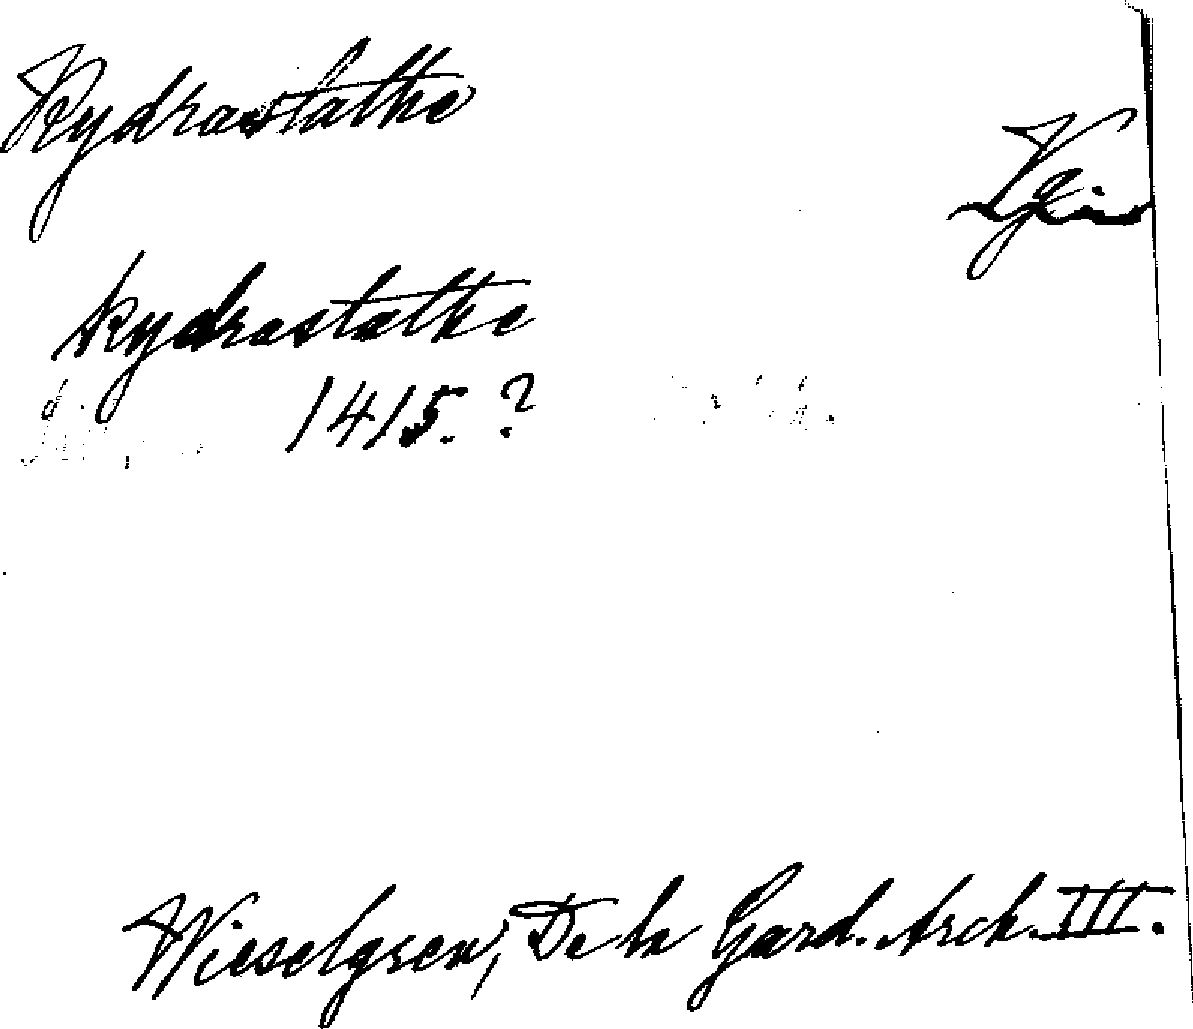 Kydrastathe
Vg.
kydrastathe
1415.?
Wieselgren, De la Gard. Arch. III.